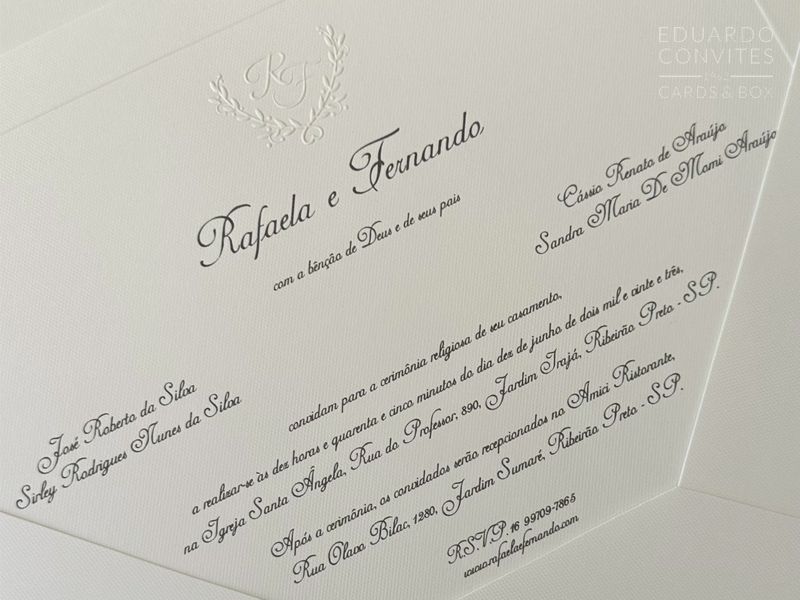 EDUARDO
CONVITES
CARDS & BOX
RF
Rafaela e Fernando
com a bênção de Deus e de seus pais
José Roberto da Silva
Sirley Rodrigues Nunes da Silva
Cássio Renato de Araújo
Sandra Maria De Momi Araújo
convidam para a cerimônia religiosa de seu casamento,
a realizar-se às dez horas e quarenta e cinco minutos do dia dez de junho de dois mil e vinte e três,
na Igreja Santa Ângela, Rua do Professor, 890, Jardim Irajá, Ribeirão Preto - S.P.
Após a cerimônia, os convidados serão recepcionados no Amici Ristorante,
Rua Olavo Bilac, 1280, Jardim Sumaré, Ribeirão Preto - S.P.
R.S.V.P. 16 99709-7865
www.rafaelaefernando.com